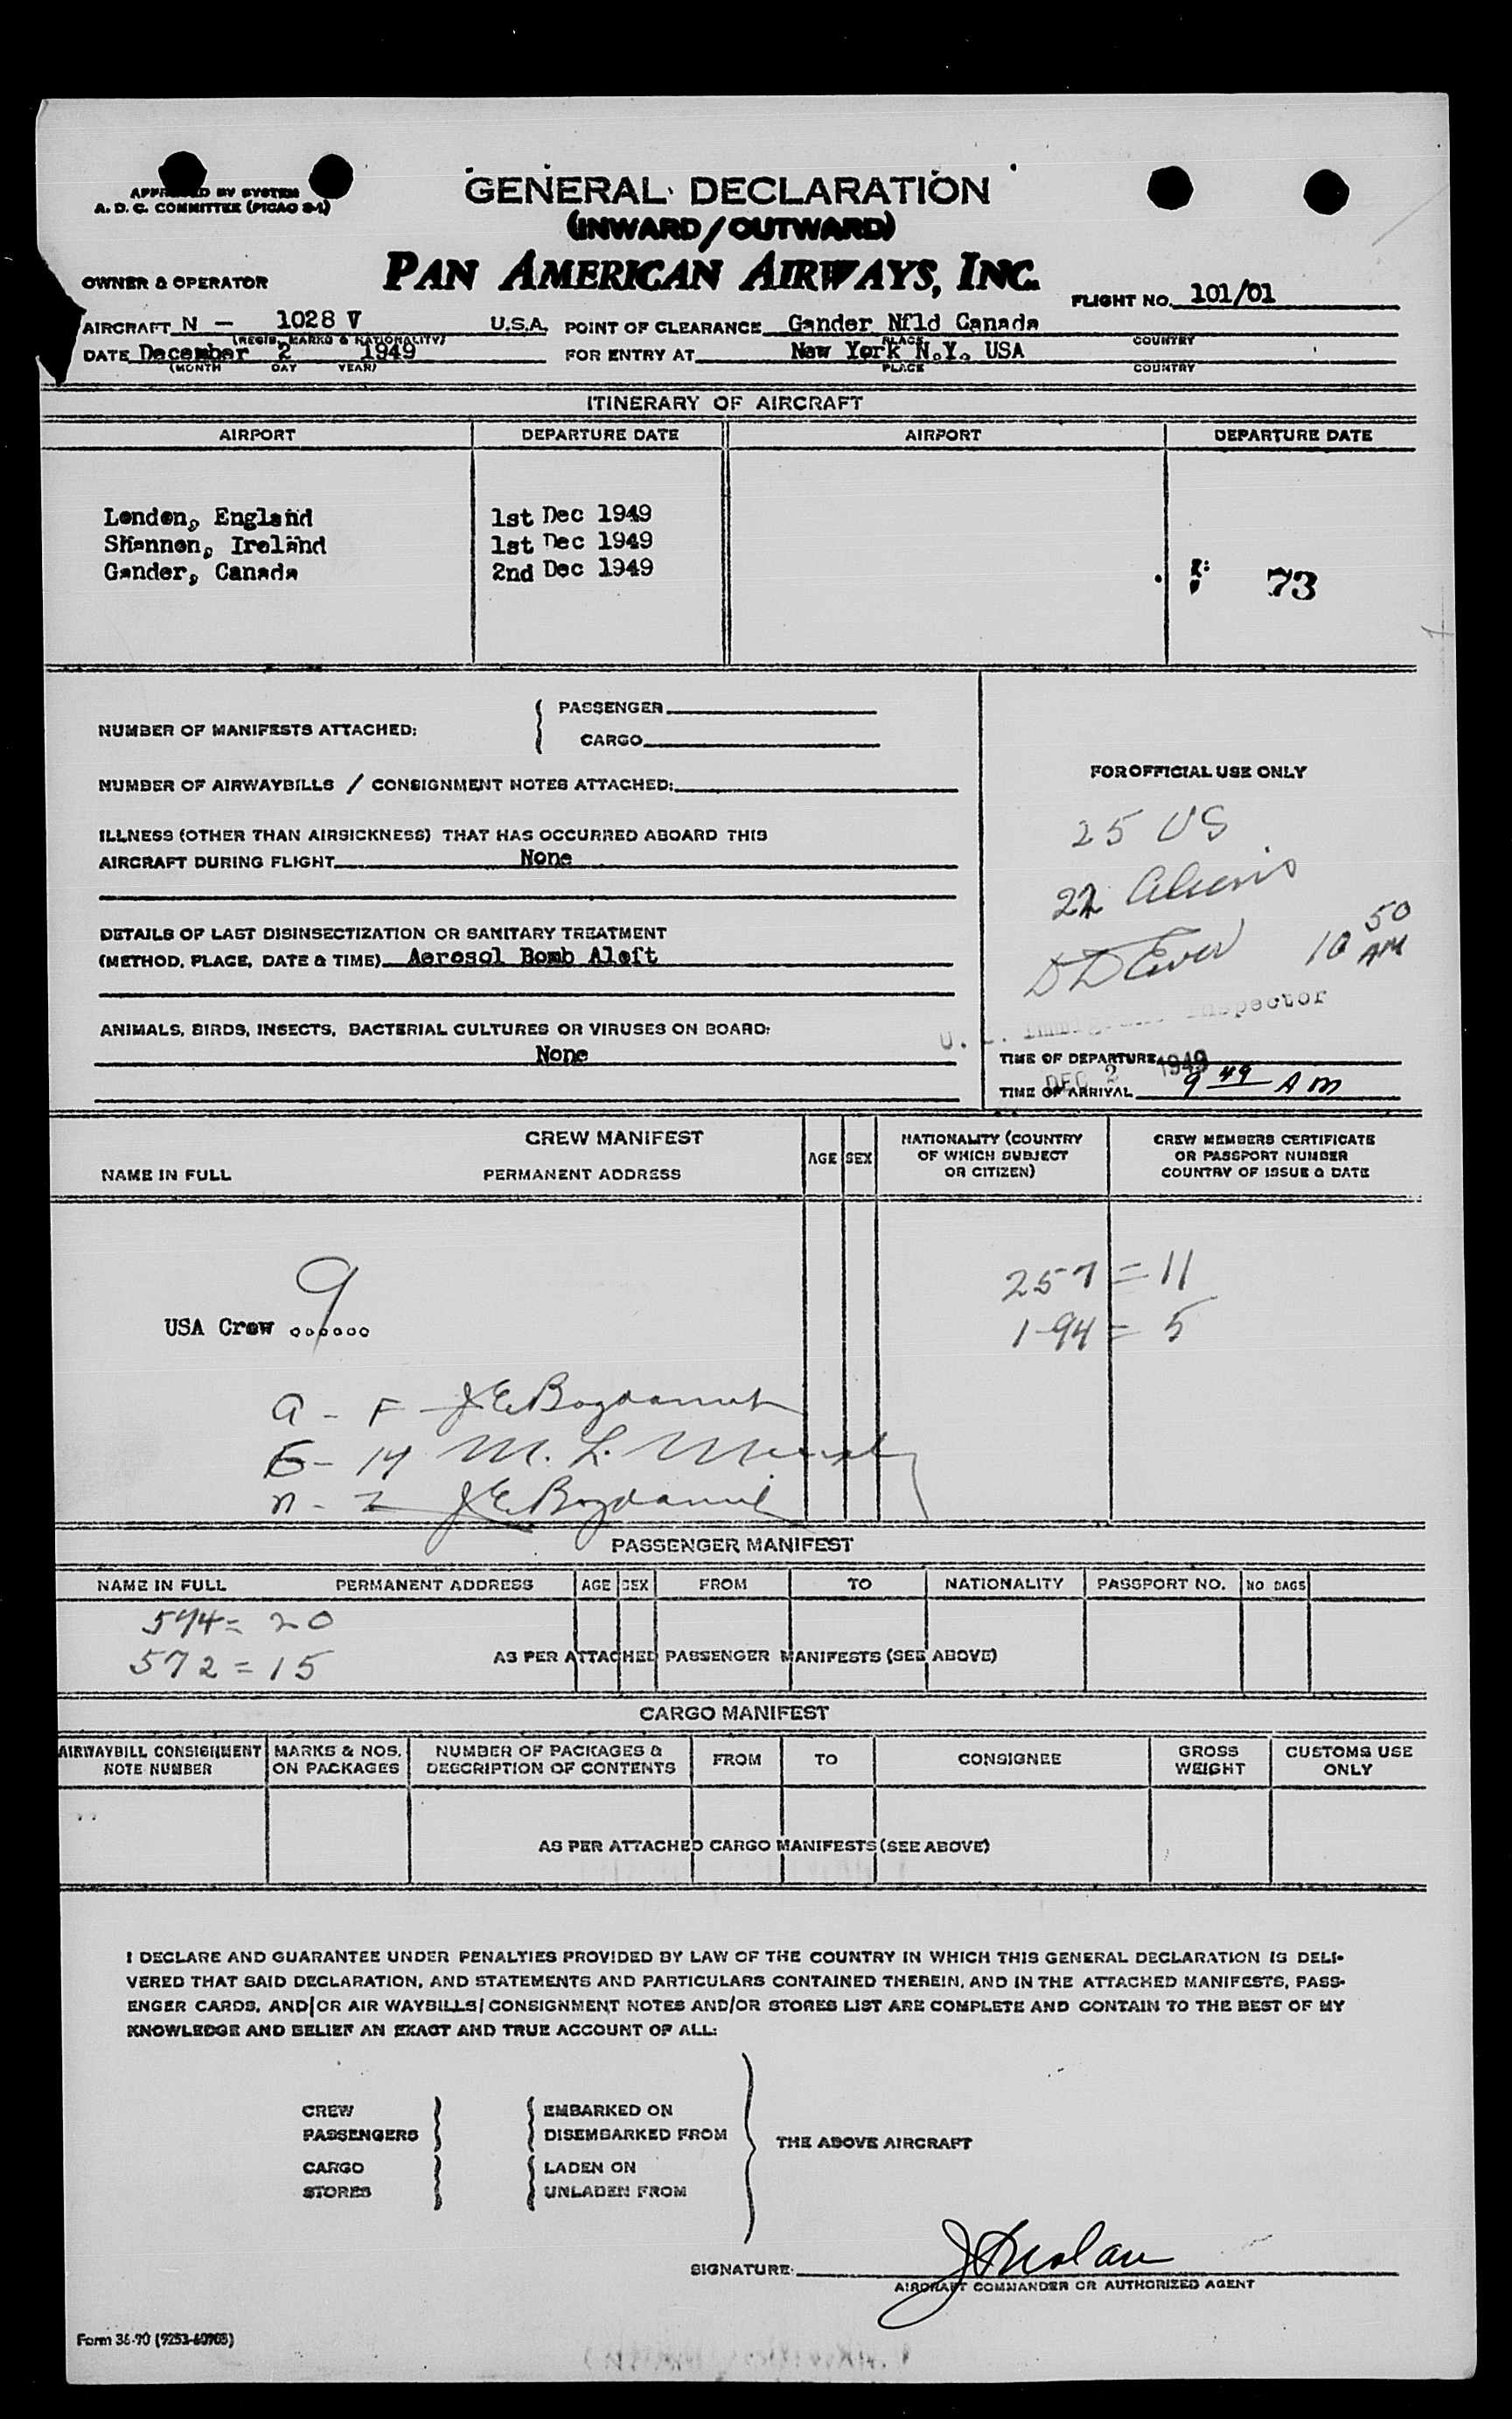 APPROVED BY SYSTEM
A. D. C. COMMITTEE (PICAO 2-1)
GENERAL DECLARATION
(INWARD/OUTWARD)
PAN AMERICAN AIRWAYS, INC.
OWNER & OPERATOR
FLIGHT NO. 101/01
AIRCRAFT N - 1028 V U.S.A. POINT OF CLEARANCE Gander Nfld Canada
(REGIS. MARKS & NATIONALITY) PLACE COUNTRY
DATE December 2 1949 FOR ENTRY AT New York N.Y. USA
(MONTH DAY YEAR) PLACE COUNTRY
ITINERARY OF AIRCRAFT
AIRPORT DEPARTURE DATE AIRPORT DEPARTURE DATE
London, England 1st Dec 1949
Shannon, Ireland 1st Dec 1949
Gander, Canada 2nd Dec 1949
73
NUMBER OF MANIFESTS ATTACHED: PASSENGER
CARGO
NUMBER OF AIRWAYBILLS / CONSIGNMENT NOTES ATTACHED:
ILLNESS (OTHER THAN AIRSICKNESS) THAT HAS OCCURRED ABOARD THIS
AIRCRAFT DURING FLIGHT None
DETAILS OF LAST DISINSECTIZATION OR SANITARY TREATMENT
(METHOD, PLACE, DATE & TIME) Aerosol Bomb Aloft
ANIMALS, BIRDS, INSECTS, BACTERIAL CULTURES OR VIRUSES ON BOARD:
None
FOR OFFICIAL USE ONLY
25 US
22 Aliens
10 50 AM
U. S. Immigrant Inspector
TIME OF DEPARTURE
DEC 2 1949
TIME OF ARRIVAL 9 49 AM
CREW MANIFEST
NAME IN FULL PERMANENT ADDRESS AGE SEX NATIONALITY (COUNTRY OF WHICH SUBJECT OR CITIZEN) CREW MEMBERS CERTIFICATE OR PASSPORT NUMBER COUNTRY OF ISSUE & DATE
257 = 11
1-94 = 5
USA Crew ...... 9
a - F
G - M M. L.
n - Z
PASSENGER MANIFEST
NAME IN FULL PERMANENT ADDRESS AGE SEX FROM TO NATIONALITY PASSPORT NO. NO. BAGS
594 = 20
572 = 15
AS PER ATTACHED PASSENGER MANIFESTS (SEE ABOVE)
CARGO MANIFEST
AIRWAYBILL CONSIGNMENT NOTE NUMBER MARKS & NOS. ON PACKAGES NUMBER OF PACKAGES & DESCRIPTION OF CONTENTS FROM TO CONSIGNEE GROSS WEIGHT CUSTOMS USE ONLY
AS PER ATTACHED CARGO MANIFESTS (SEE ABOVE)
I DECLARE AND GUARANTEE UNDER PENALTIES PROVIDED BY LAW OF THE COUNTRY IN WHICH THIS GENERAL DECLARATION IS DELI-
VERED THAT SAID DECLARATION, AND STATEMENTS AND PARTICULARS CONTAINED THEREIN, AND IN THE ATTACHED MANIFESTS, PASS-
ENGER CARDS, AND/OR AIR WAYBILLS/CONSIGNMENT NOTES AND/OR STORES LIST ARE COMPLETE AND CONTAIN TO THE BEST OF MY
KNOWLEDGE AND BELIEF AN EXACT AND TRUE ACCOUNT OF ALL:
CREW EMBARKED ON
PASSENGERS DISEMBARKED FROM
THE ABOVE AIRCRAFT
CARGO LADEN ON
STORES UNLADEN FROM
SIGNATURE: J Nolan
AIRCRAFT COMMANDER OR AUTHORIZED AGENT
Form 36-90 (9253-60905)